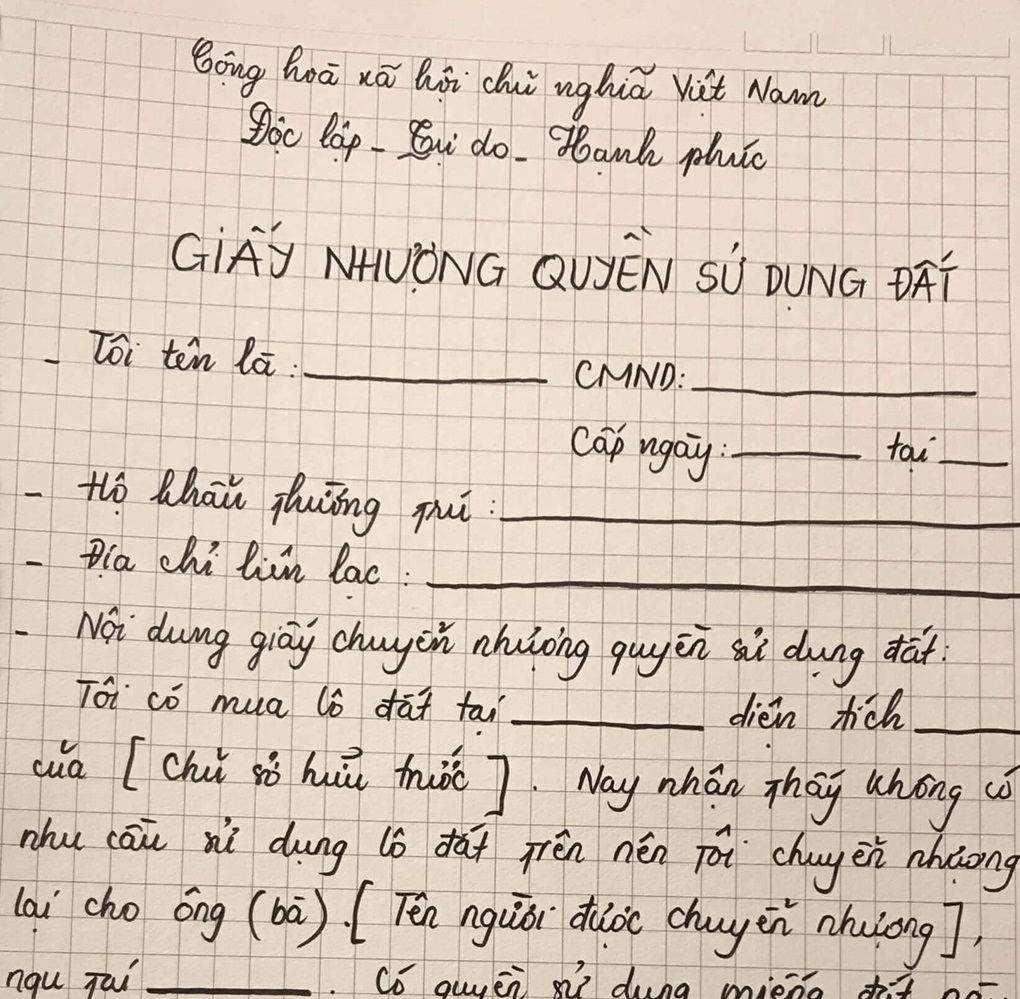 Cộng hoà xã hội chủ nghĩa Việt Nam
Độc lập - Tự do - Hạnh phúc
GIẤY NHƯỢNG QUYỀN SỬ DỤNG ĐẤT
- Tôi tên là: CMND:
Cấp ngày: tại
- Hộ khẩu thường trú:
- Địa chỉ liên lạc:
- Nội dung giấy chuyển nhượng quyền sử dụng đất:
Tôi có mua lô đất tại diện tích
của [Chủ sở hữu trước]. Nay nhận thấy không có
nhu cầu sử dụng lô đất trên nên tôi chuyển nhượng
lại cho ông (bà) [Tên người được chuyển nhượng],
ngụ tại . Có quyền sử dụng miếng đất